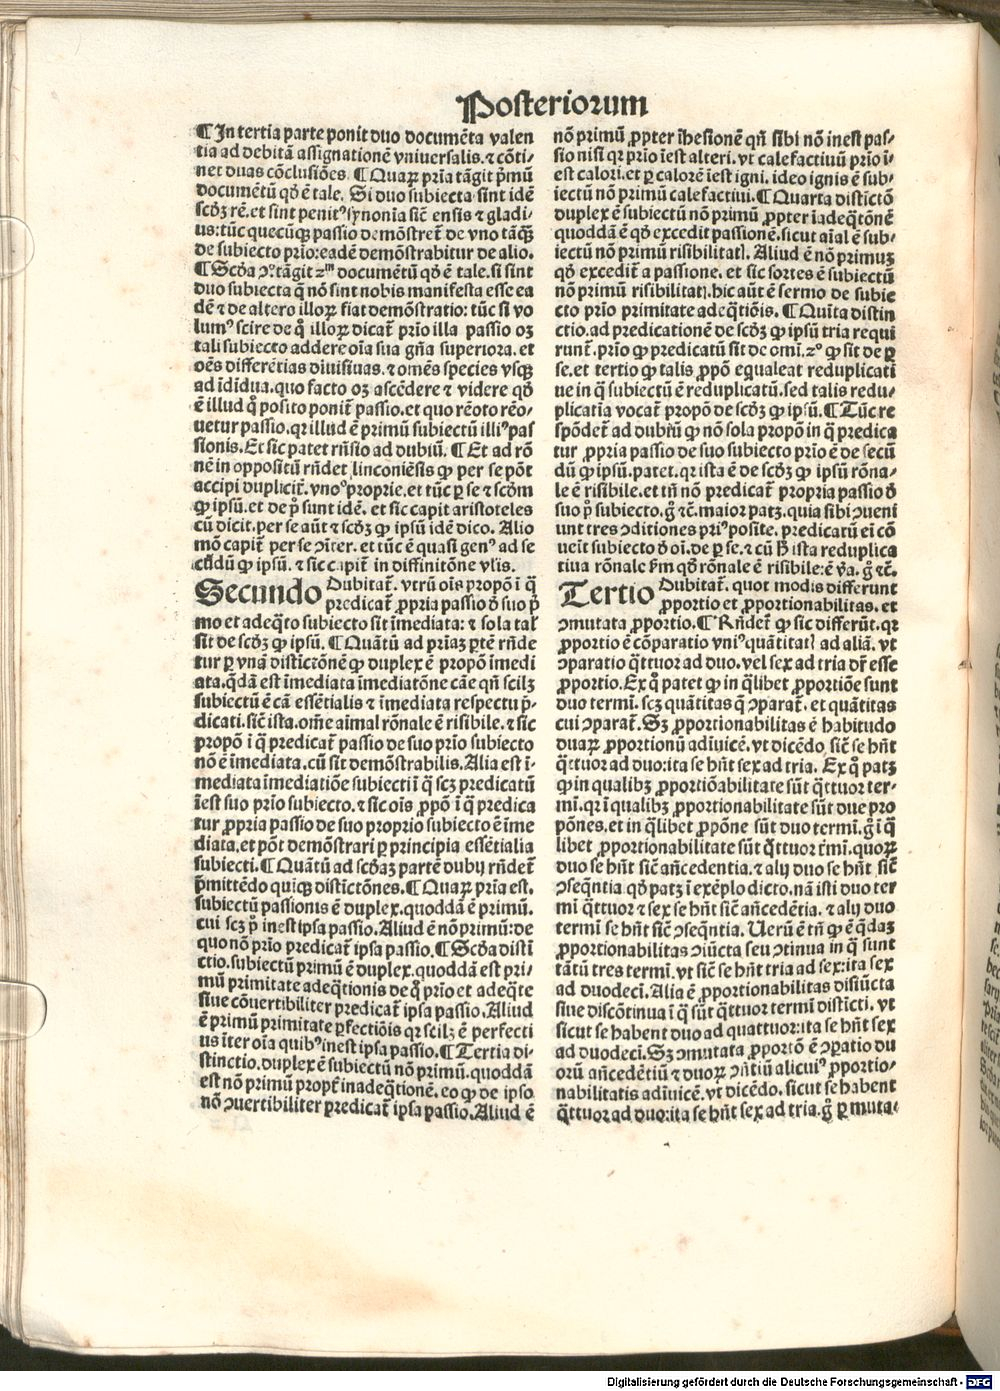 Posteriorum
¶ In tertia parte ponit duo documēta valen
tia ad debitā assignationē vniuersalis. ⁊ cōti-
net duas cōclusiōes. ¶ Quaꝝ pria tāgit pͥmū
documētū qđ ē tale. Si duo subiecta sint idē
scđꝫ rē. et sint penitꝰ synonia sic̄ ensis ⁊ gladi-
us: tūc quecūqꝫ passio demōstret̄ de vno tāqꝫ
de subiecto prio: eadē demōstrabitur de alio.
¶ Scđa ꝯo tāgit 2m documētū qđ ē tale. si sint
duo subiecta q̄ nō sint nobis manifesta esse ea
dē ⁊ de altero illoꝝ fiat demōstratio: tūc si vo
lumꝰ scire de q̊ illoꝝ dicat̄ prio illa passio oꝫ
tali subiecto addere oia sua gn̄a superiora. et
oēs differētias diuisiuas. ⁊ omēs species vsqꝫ
ad īdīdua. quo facto oꝫ ascēdere ⁊ videre qđ
ē illud q̊ posito ponit̄ passio. et quo rēoto rēo-
uetur passio. qr illud ē primū subiectū illiꝰ pas
sionis. Et sic patet rn̄sio ad dubiū. ¶ Et ad rō
nē in oppositū rn̄det linconiēsis ꝙ per se pōt
accipi duplicit̄. vnoo proprie. et tūc ꝑ se ⁊ scđm
ꝙ ipsū. et de pͦ sunt idē. et sic capit aristoteles
cū dicit. per se aūt ⁊ scđꝫ ꝙ ipsū idē dico. Alio
mō capit̄ per se ꝯiter. et tūc ē quasi genꝰ ad se
cūdū ꝙ ipsū. ⁊ sic capit̄ in diffinitōne vlis.
Secundo Dubitat̄. vtrū ois propō ī q̄
predicat̄ ꝓpria passio đ suo pͦ
mo et adeq̄to subiecto sit īmediata: ⁊ sola tal
sit de scđꝫ ꝙ ipsū. ¶ Quātū ad priaꝫ ꝑtē rn̄de
tur ꝑ vnā distictōnē ꝙ duplex ē propō īmedi
ata. q̄dā est īmediata īmediatōne cāe qn̄ scilꝫ
subiectū ē cā essētialis ⁊ īmediata respectu p̄-
dicati. sic̄ ista. om̄e aīmal rōnale ē risibile. ⁊ sic
propō ī q̄ predicat̄ passio de suo prio subiecto
nō ē īmediata. cū sit demōstrabilis. Alia est ī-
mediata īmediatiōe subiecti ī q̄ scꝫ predicatū
īest suo prio subiecto. ⁊ sic ois ꝓpō ī q̄ predica
tur ꝓpria passio de suo proprio subiecto ē īme
diata. et pōt demōstrari ꝑ principia essētialia
subiecti. ¶ Quātū ad scđaꝫ partē dubij rn̄det̄
p̄mittēdo quiqꝫ distictōnes. ¶ Quaꝝ pria est.
subiectū passionis ē duplex. quoddā ē primū.
cui scꝫ pͦ inest ipsa passio. Aliud ē nō primū: de
quo nō prio predicat̄ ipsa passio. ¶ Scđa disti
ctio. subiectū primū ē duplex. quoddā est pri-
mū primitate adeq̄tionis de q̊ prio et adeq̄te
siue cōuertibiliter predicat̄ ipsa passio. Aliud
ē primū primitate ꝑfectiōis qr scilꝫ ē perfecti
us īter oia quibꝰ inest ipsa passio. ¶ Tertia di-
stinctio. duplex ē subiectū nō primū. quoddā
est nō primū propt̄ inadeq̄tionē. eo ꝙ de ipso
nō ꝯuertibiliter predicat̄ ipsa passio. Aliud ē
nō primū ꝓpter īhesionē qn̄ sibi nō inest pas-
sio nisi qr prio īest alteri. vt calefactiuū prio ī-
est calori. et ꝑ calorē īest igni. ideo ignis ē sub-
iectū nō primū calefactiui. ¶ Quarta distictō
duplex ē subiectū nō primū ꝓpter īadeq̄tōnē
quoddā ē qđ excedit passionē. sicut aīal ē sub-
iectū nō primū risibilitatꝭ. Aliud ē nō primuꝫ
qđ excedit̄ a passione. et sic sortes ē subiectū
nō primū risibilitatꝭ. hic aūt ē sermo de subie
cto prio primitate adeq̄tiōis. ¶ Quīta distin
ctio. ad predicationē de scđꝫ ꝙ ipsū tria requi
runt̄. prio ꝙ predicatū sit de omī. 2o ꝙ sit de ꝑ
se. et tertio ꝙ talis ꝓpō equaleat reduplicati
ue in q̄ subiectū ē reduplicatū. sed talis redu-
plicatia vocat̄ propō de scđꝫ ꝙ ipsū. ¶ Tūc re
spōdet̄ ad dubiū ꝙ nō sola propō in q̄ predica
tur ꝓpria passio de suo subiecto prio ē de secū
dū ꝙ ipsū. patet. qr ista ē de scđꝫ ꝙ ipsū rōna-
le ē risibile. et tn̄ nō predicat̄ propria passio đ
suo pͦ subiecto. g̊ ⁊c̄. maior patꝫ. quia sibi ꝯueni
unt tres ꝯditiones priꝰ posite. predicatū ei cō
ueit subiecto đ oi. de ꝑ se. ⁊ cū h̄ ista reduplica
tiua rōnale fm qđ rōnale ē risibile: ē v̄a. g̊ ⁊c̄.
Tertio Dubitat̄. quot modis differunt
ꝓportio et ꝓportionabilitas. et
ꝯmutata ꝓportio. ¶ Rn̄det̄ ꝙ sic differūt. qr
ꝓportio ē cōparatio vniꝰ quātitatꝭ ad aliā. vt
ꝯparatio q̄ttuor ad duo. vel sex ad tria dr̄ esse
ꝓportio. Ex q̊ patet ꝙ in q̄libet ꝓportiōe sunt
duo termī. scꝫ quātitas q̄ ꝯparat̄. et quātitas
cui ꝯparat̄. Sꝫ ꝓportionabilitas ē habitudo
duaꝝ ꝓportionū adīuicē. vt dicēdo. sic̄ se hn̄t
q̄ttuor ad duo: ita se hn̄t sex ad tria. Ex q̊ patꝫ
ꝙ in qualibꝫ ꝓportiōabilitate sūt q̄ttuor ter-
mī. qr ī qualibꝫ ꝓportionabilitate sūt due pro
pōnes. et in q̄libet ꝓpōne sūt duo termī. g̊ ī q̄
libet ꝓportionabilitate sūt q̄ttuor t̄mī. quoꝝ
duo se hn̄t sic̄ an̄cedentia. ⁊ alij duo se hn̄t sic̄
ꝯseq̄ntia. qđ patꝫ ī exēplo dicto. nā isti duo ter
mī q̄ttuor ⁊ sex se hn̄t sic̄ an̄cedētia. ⁊ alij duo
termī se hn̄t sic̄ ꝯseq̄ntia. Uerū ē tn̄ ꝙ ē q̄daꝫ
ꝓportionabilitas ꝯiūcta seu ꝯtinua in q̄ sunt
tātū tres termī. vt sic̄ se hn̄t tria ad sex: ita sex
ad duodecī. Alia ē ꝓportionabilitas disiūcta
siue discōtinua ī q̄ sūt q̄ttuor termī disticti. vt
sicut se habent duo ad quattuor: ita se hn̄t sex
ad duodecī. Sꝫ ꝯmutata ꝓportō ē ꝯparatio du
orū an̄cedētiū ⁊ duoꝝ ꝯn̄tiū alicuiꝰ ꝓportio-
nabilitatis adīuicē. vt dicēdo. sicut se habent
q̄ttuor ad duo: ita se hn̄t sex ad tria. g̊ ꝑ muta-
Digitalisierung gefördert durch die Deutsche Forschungsgemeinschaft - DFG